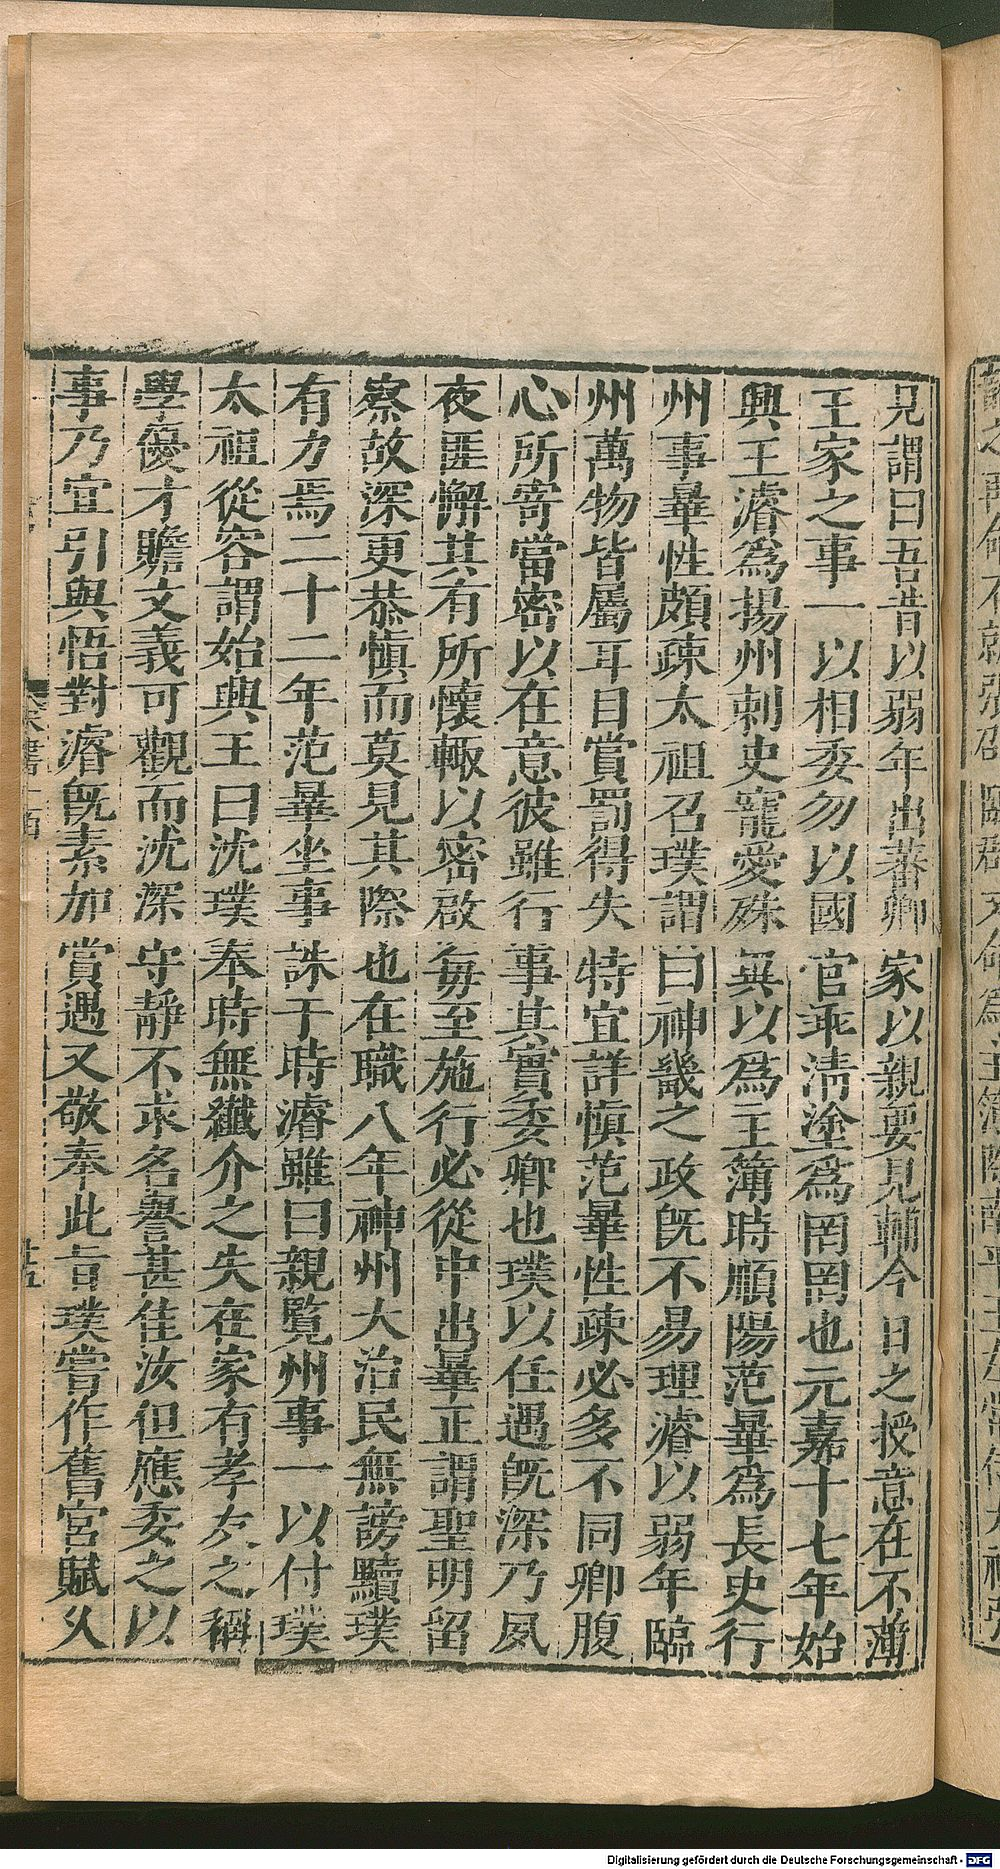 見謂曰吾昔以弱年出蕃卿家以親要見輔今日之授意在不薄
王家之事一以相委勿以國官乖清塗爲罔罔也元嘉十七年始
興王濬爲揚州刺史寵愛殊異以爲主簿時順陽范畢爲長史行
州事畢性頗疎太祖召璞謂曰神畿之政旣不易理濬以弱年臨
州萬物皆屬耳目賞罰得失特宜詳愼范畢性疎必多不同卿腹
心所寄當密以在意彼雖行事其實委卿也璞以任遇旣深乃夙
夜匪懈其有所懷輙以密啟每至施行必從中出畢正謂聖明留
察故深更恭愼而莫見其際也在職八年神州大治民無謗黷璞
有力焉二十二年范畢坐事誅于時濬雖曰親覽州事一以付璞
太祖從容謂始興王曰沈璞奉時無纎介之失在家有孝友之稱
學優才贍文義可觀而沈深守靜不求名譽甚佳汝但應委之以
事乃宜引與悟對濬旣素加賞遇又敬奉此旨璞嘗作舊宮賦久
宋書
廿五
Digitalisierung gefördert durch die Deutsche Forschungsgemeinschaft - DFG